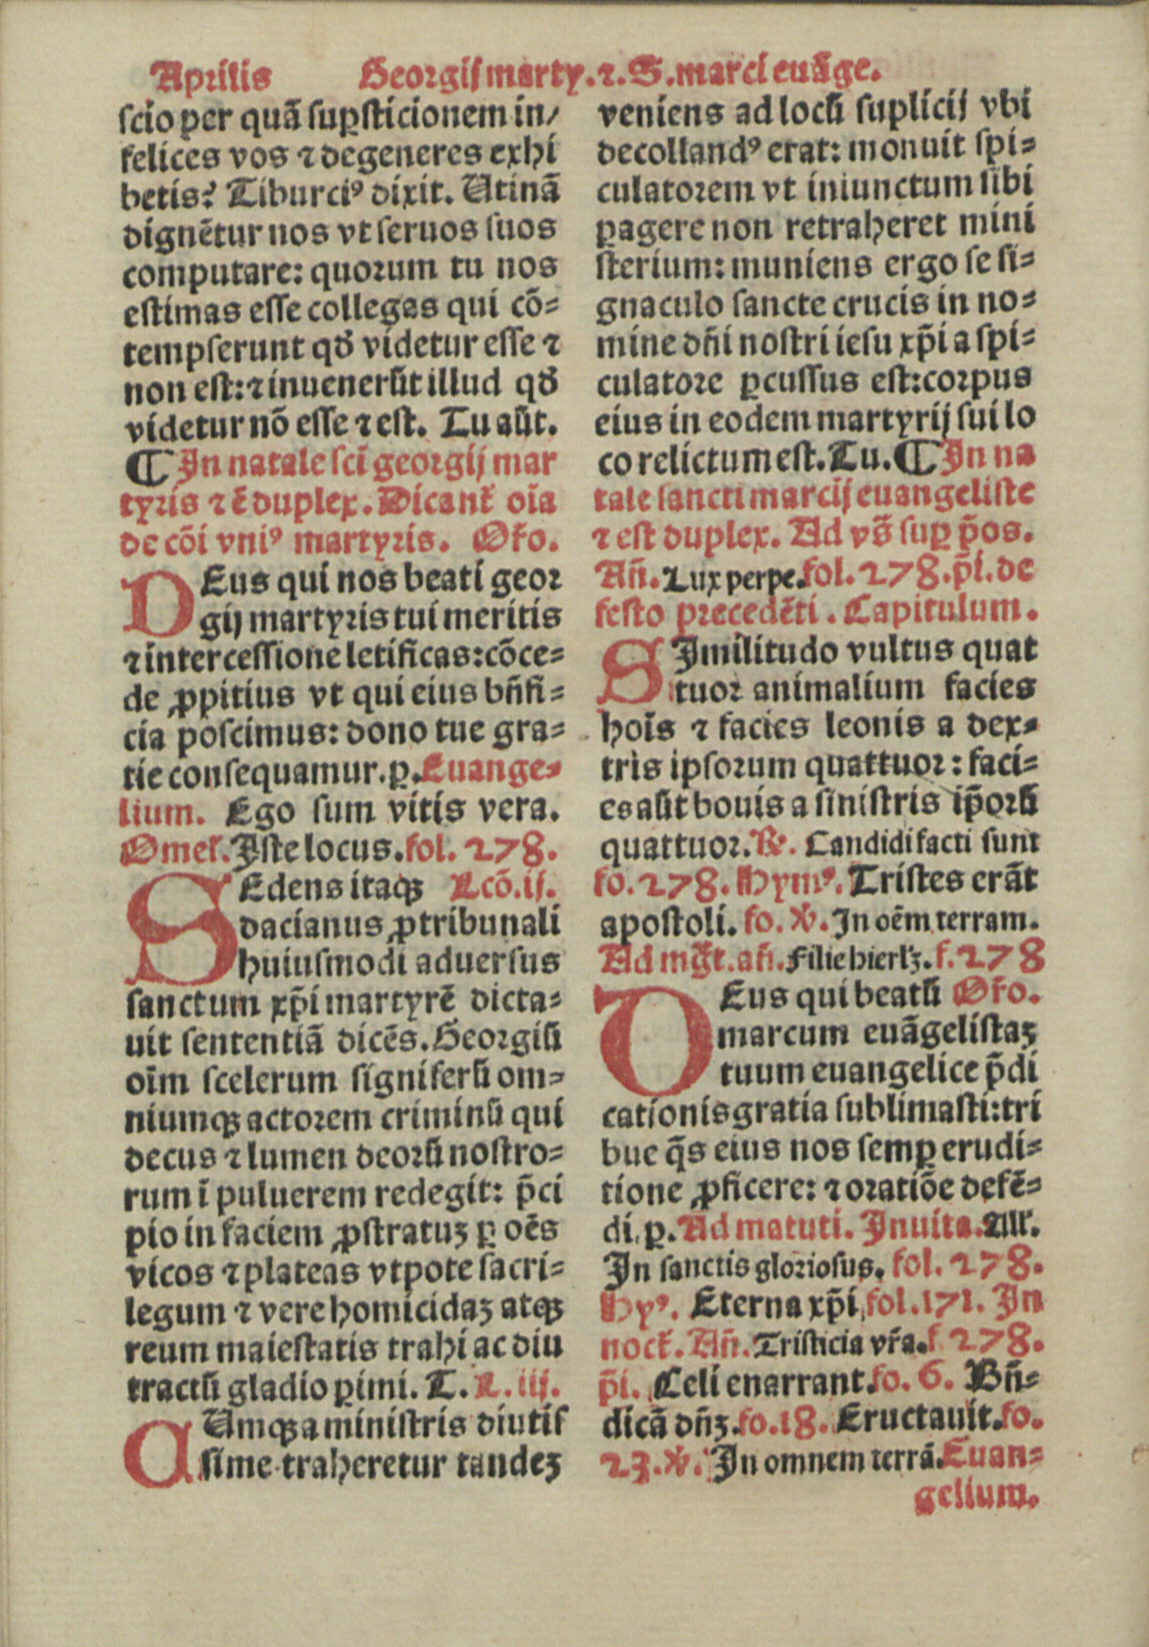 Aprilis Georgij marty. ⁊. S. marci euãge.
scio per quã suꝑsticionem in/
felices vos ⁊ degeneres exhi
betis? Tiburciꝰ dixit. Utinã
dignẽtur nos vt seruos suos
computare: quorum tu nos
estimas esse collegas qui cõ-
tempserunt qđ videtur esse ⁊
non est: ⁊ inuenerũt illud qđ
videtur nõ esse ⁊ est. Tu aũt.
¶ In natale sci̅ georgij mar
tyris ⁊ ẽ duplex. Dicant̃ oi̅a
de cõi vniꝰ martyris. Or̃o.
DEus qui nos beati geor
gij martyris tui meritis
⁊ intercessione letificas: cõce-
de ꝓpitius vt qui eius bñfi-
cia poscimus: dono tue gra-
tie consequamur. ꝑ. Euange-
lium. Ego sum vitis vera.
Omel̃. Iste locus. fol. 278.
SEdens itaqꝫ Lcõ. ij.
dacianus ꝓ tribunali
huiusmodi aduersus
sanctum xp̃i martyrẽ dicta-
uit sententiã dicẽs. Georgiũ
oi̅m scelerum signiferũ om-
niumqꝫ actorem criminũ qui
decus ⁊ lumen deorũ nostro-
rum ĩ puluerem redegit: p̃ci
pio in faciem ꝓstratuꝫ ꝑ oẽs
vicos ⁊ plateas vtpote sacri-
legum ⁊ vere homicidaꝫ atqꝫ
reum maiestatis trahi ac diu
tractũ gladio ꝑimi. T. L. iij.
CUmqꝫ a ministris diutis
sime traheretur tandeꝫ
veniens ad locũ suplicij vbi
decollandꝰ erat: monuit spi-
culatorem vt iniunctum sibi
ꝑagere non retraheret mini
sterium: muniens ergo se si-
gnaculo sancte crucis in no-
mine dñi nostri iesu xp̃i a spi-
culatore ꝑcussus est: corpus
eius in eodem martyrij sui lo
co relictum est. Tu. ¶ In na
tale sancti marcij euangeliste
⁊ est duplex. Ad vs̃ suꝑ p̃os.
Añ. Lux perpe. fol. 278. p̃i. de
festo precedẽti. Capitulum.
SImilitudo vultus quat
tuor animalium facies
hoi̅s ⁊ facies leonis a dex-
tris ipsorum quattuor: faci-
es aũt bouis a sinistris ip̃orũ
quattuor. ℟. Candidi facti sunt
fo. 278. Hymꝰ. Tristes erãt
apostoli. fo. ℣. In oẽm terram.
Ad mg̃t. añ. Filie hierl̃ꝫ. f. 278
DEus qui beatũ Or̃o.
marcum euãgelistaꝫ
tuum euangelice p̃di
cationis gratia sublimasti: tri
bue q̃s eius nos semꝑ erudi-
tione ꝓficere: ⁊ oratiõe defẽ-
di. ꝑ. Ad matuti. Inuita. All̃.
In sanctis gloriosus. fol. 278.
Hyꝰ. Eterna xp̃i, fol. 171. In
noct̃. Añ. Tristicia vr̃a. f. 278.
p̃i. Celi enarrant. fo. 6. Bñ-
dicã dñꝫ. fo. 18. Eructauit. fo.
23. ℣. In omnem terrã. Euan-
gelium.